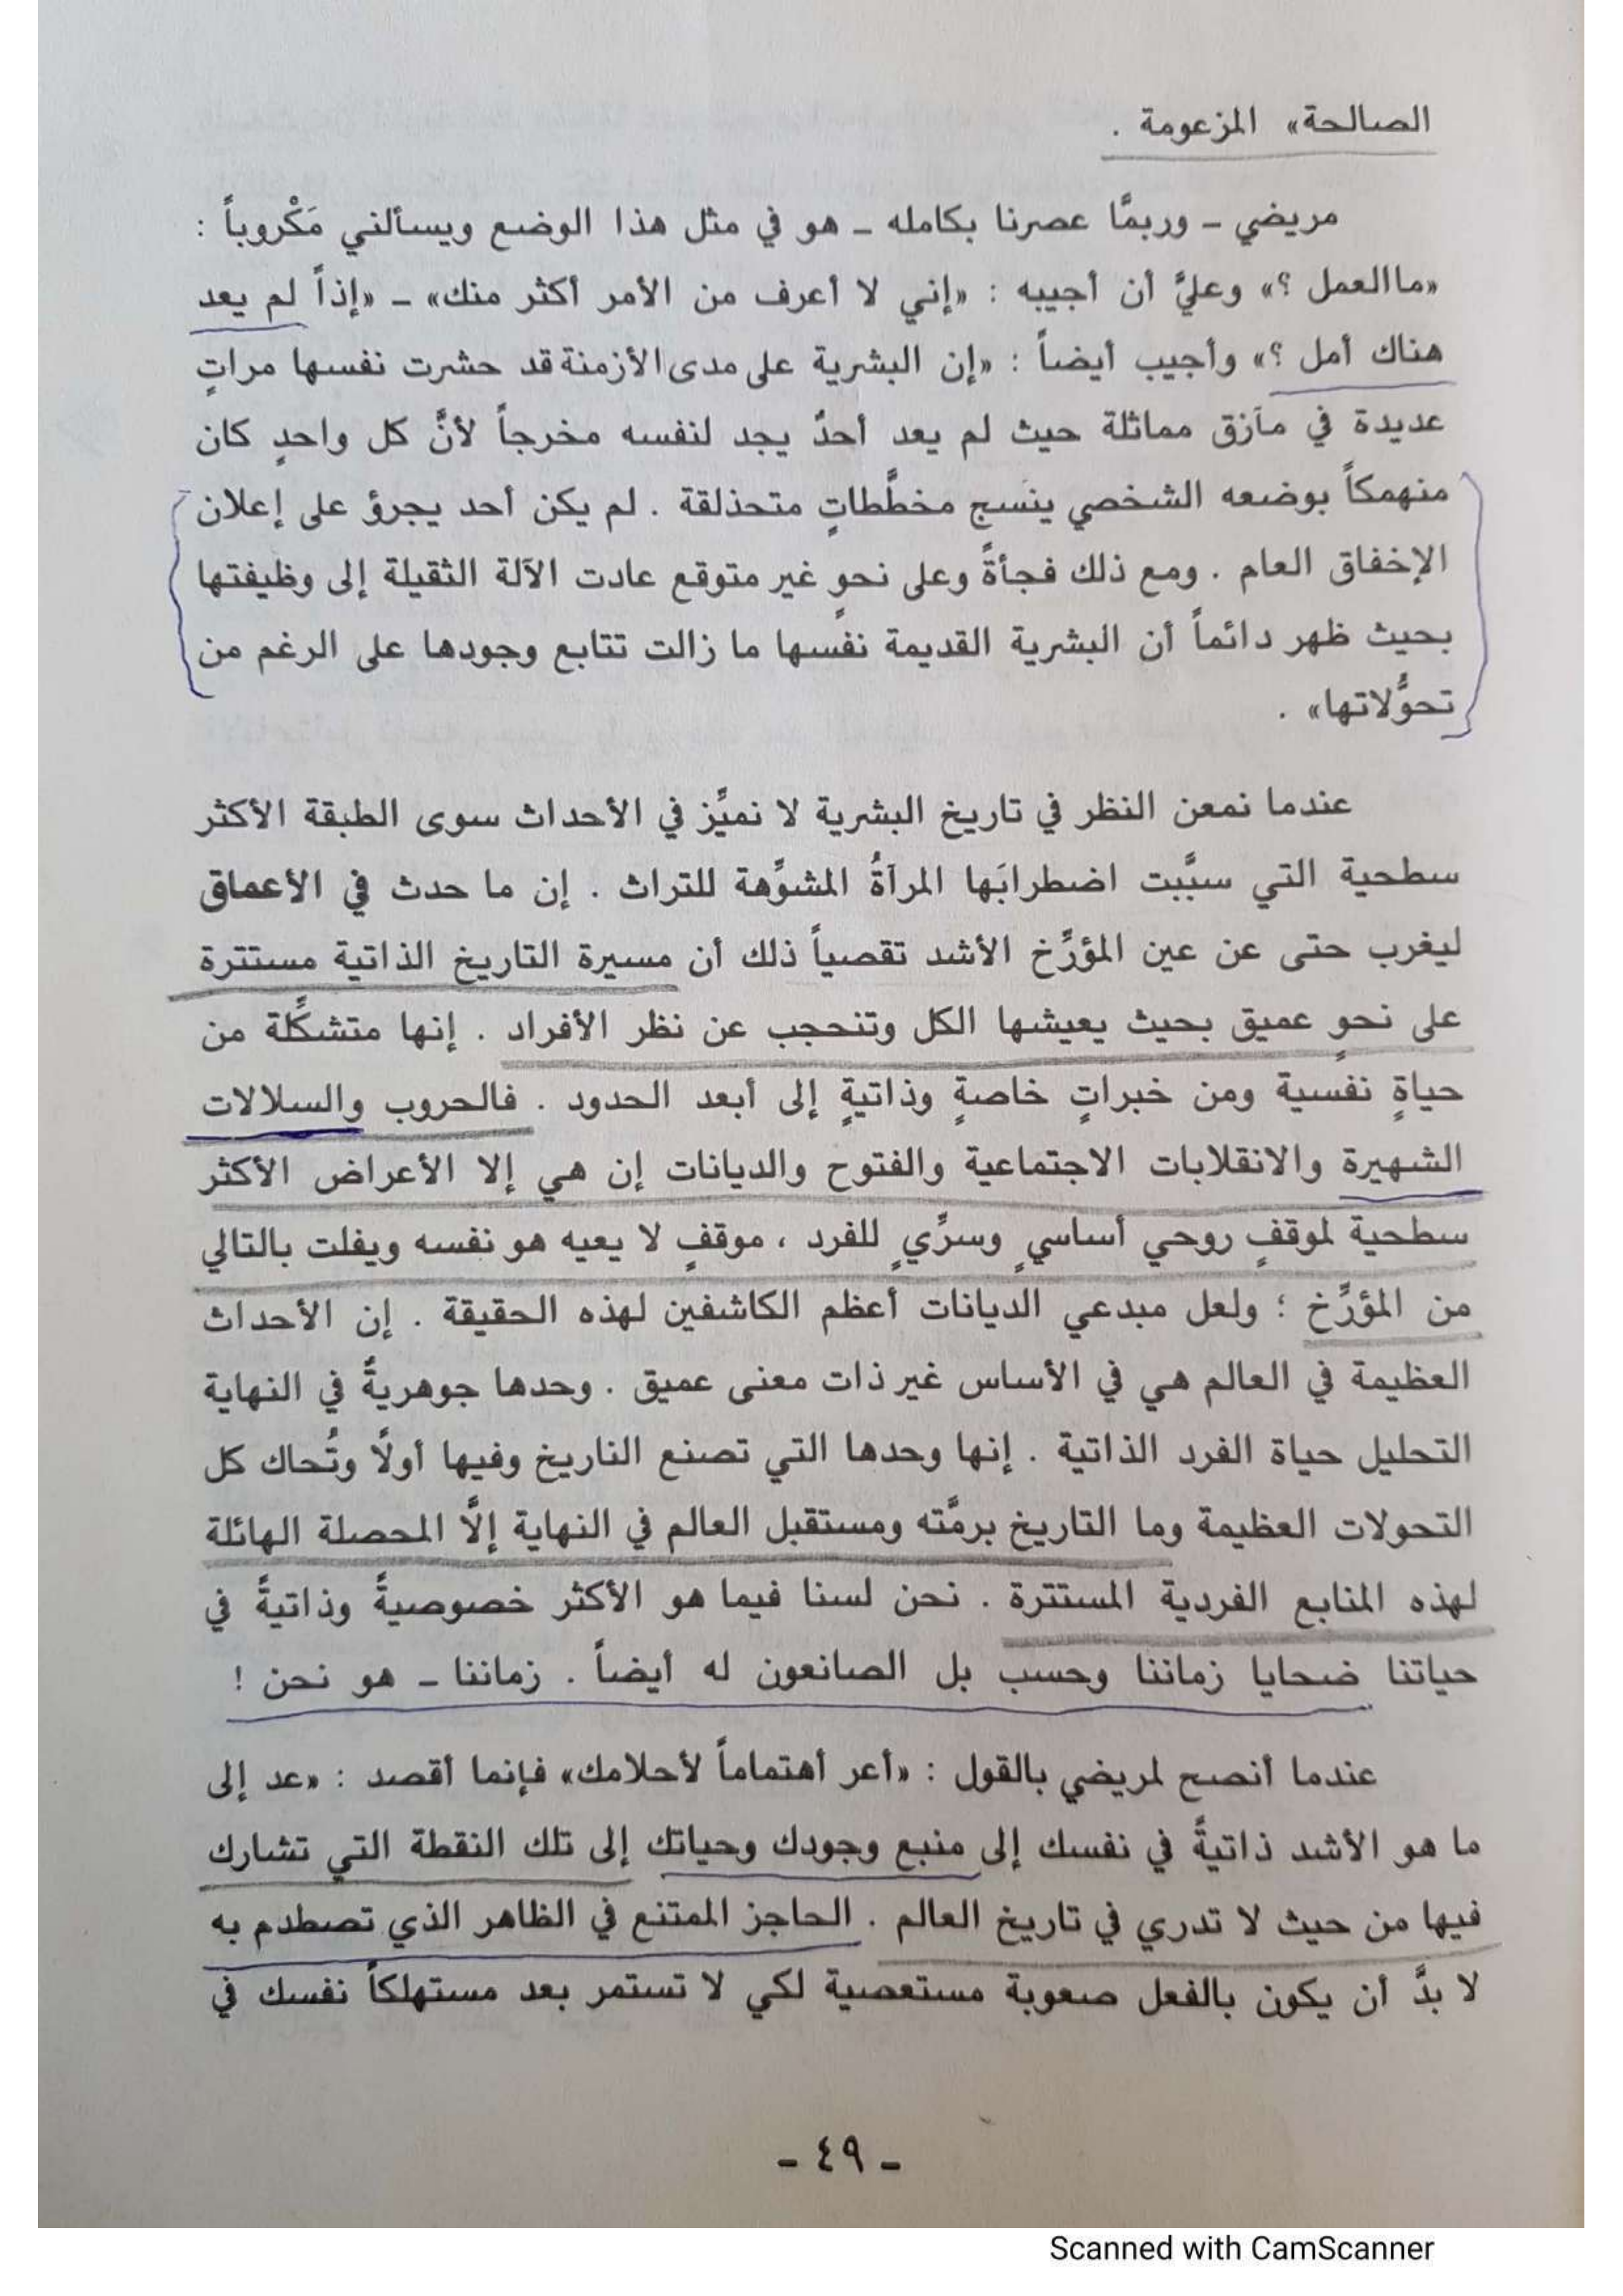 الصالحة» المزعومة .
مريضي - وربمًّا عصرنا بكامله - هو في مثل هذا الوضع ويسألني مَكْروباً :
«ماالعمل ؟» وعليَّ أن أجيبه : «إني لا أعرف من الأمر أكثر منك» - «إذاً لم يعد
هناك أمل ؟» وأجيب أيضاً : «إن البشرية على مدى الأزمنة قد حشرت نفسها مراتٍ
عديدة في مآزق مماثلة حيث لم يعد أحدٌ يجد لنفسه مخرجاً لأنَّ كل واحدٍ كان
منهمكاً بوضعه الشخصي ينسج مخطَّطاتٍ متحذلقة . لم يكن أحد يجرؤ على إعلان
الإخفاق العام . ومع ذلك فجأةً وعلى نحوٍ غير متوقع عادت الآلة الثقيلة إلى وظيفتها
بحيث ظهر دائماً أن البشرية القديمة نفسها ما زالت تتابع وجودها على الرغم من
تحوُّلاتها» .
عندما نمعن النظر في تاريخ البشرية لا نميِّز في الأحداث سوى الطبقة الأكثر
سطحية التي سبَّبت اضطرابَها المرآةُ المشوِّهة للتراث . إن ما حدث في الأعماق
ليغرب حتى عن عين المؤرِّخ الأشد تقصياً ذلك أن مسيرة التاريخ الذاتية مستترة
على نحوٍ عميق بحيث يعيشها الكل وتنحجب عن نظر الأفراد . إنها متشكِّلة من
حياةٍ نفسية ومن خبراتٍ خاصةٍ وذاتيةٍ إلى أبعد الحدود . فالحروب والسلالات
الشهيرة والانقلابات الاجتماعية والفتوح والديانات إن هي إلا الأعراض الأكثر
سطحية لموقفٍ روحي أساسيٍ وسرِّيٍ للفرد ، موقفٍ لا يعيه هو نفسه ويفلت بالتالي
من المؤرِّخ ؛ ولعل مبدعي الديانات أعظم الكاشفين لهذه الحقيقة . إن الأحداث
العظيمة في العالم هي في الأساس غير ذات معنى عميق . وحدها جوهريةٌ في النهاية
التحليل حياة الفرد الذاتية . إنها وحدها التي تصنع التاريخ وفيها أولًا وتُحاك كل
التحولات العظيمة وما التاريخ برمَّته ومستقبل العالم في النهاية إلَّا المحصلة الهائلة
لهذه المنابع الفردية المستترة . نحن لسنا فيما هو الأكثر خصوصيةً وذاتيةً في
حياتنا ضحايا زماننا وحسب بل الصانعون له أيضاً . زماننا - هو نحن !
عندما أنصح لمريضي بالقول : «أعر أهتماماً لأحلامك» فإنما أقصد : «عد إلى
ما هو الأشد ذاتيةً في نفسك إلى منبع وجودك وحياتك إلى تلك النقطة التي تشارك
فيها من حيث لا تدري في تاريخ العالم . الحاجز الممتنع في الظاهر الذي تصطدم به
لا بدَّ أن يكون بالفعل صعوبة مستعصية لكي لا تستمر بعد مستهلكاً نفسك في
- ٤٩ -
Scanned with CamScanner